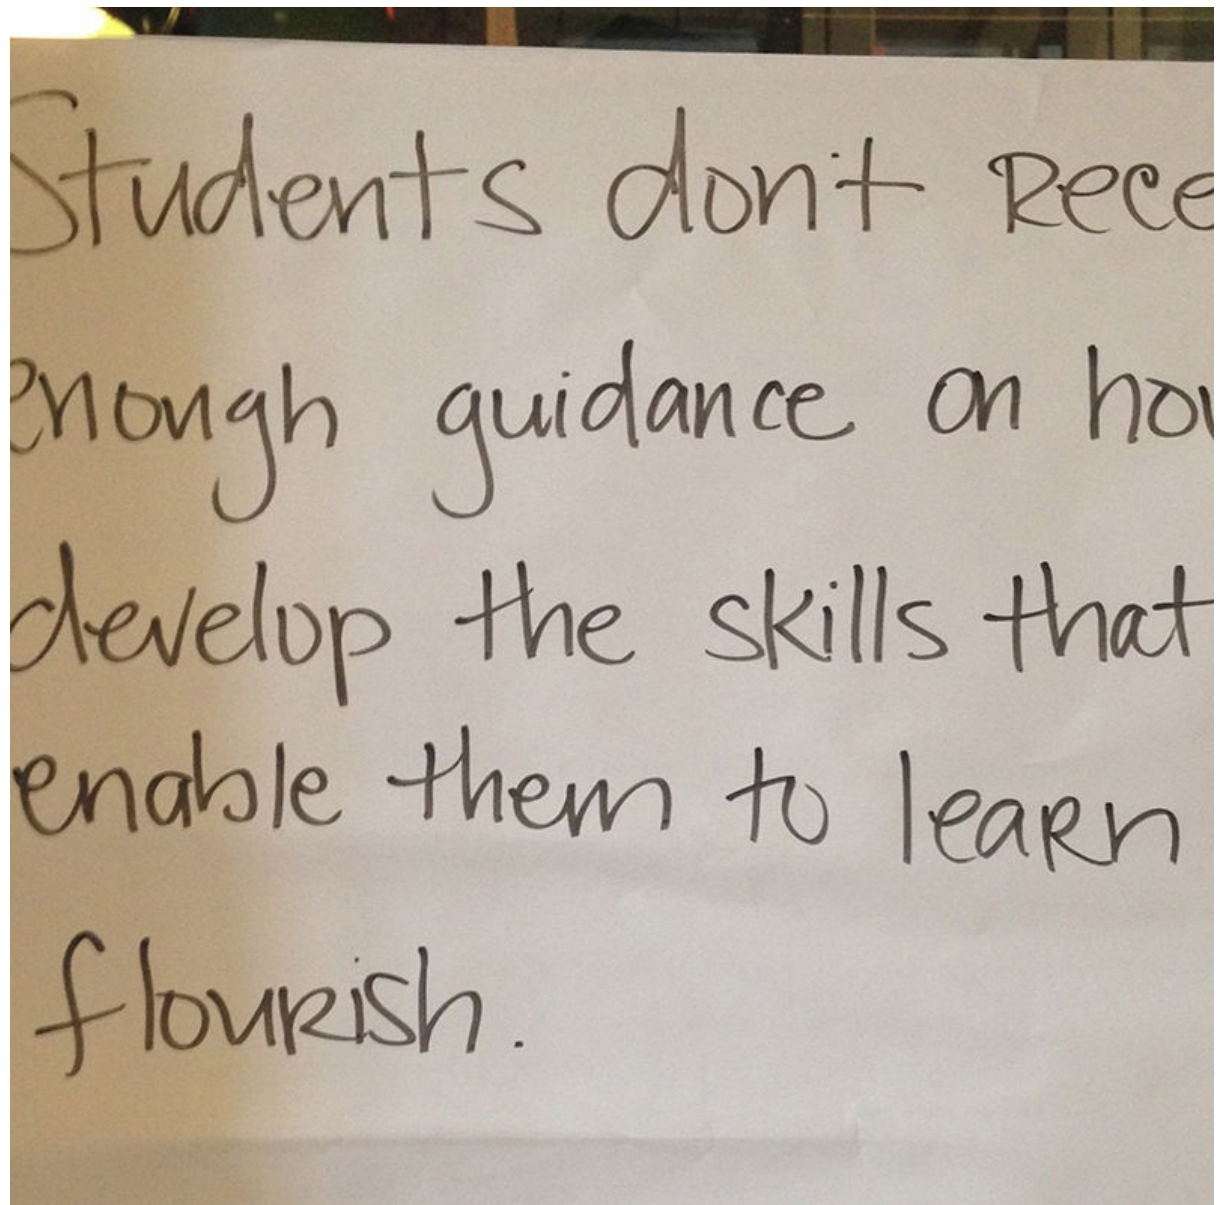 Students don't Rece
enough guidance on how
develop the skills that
enable them to learn
flourish.